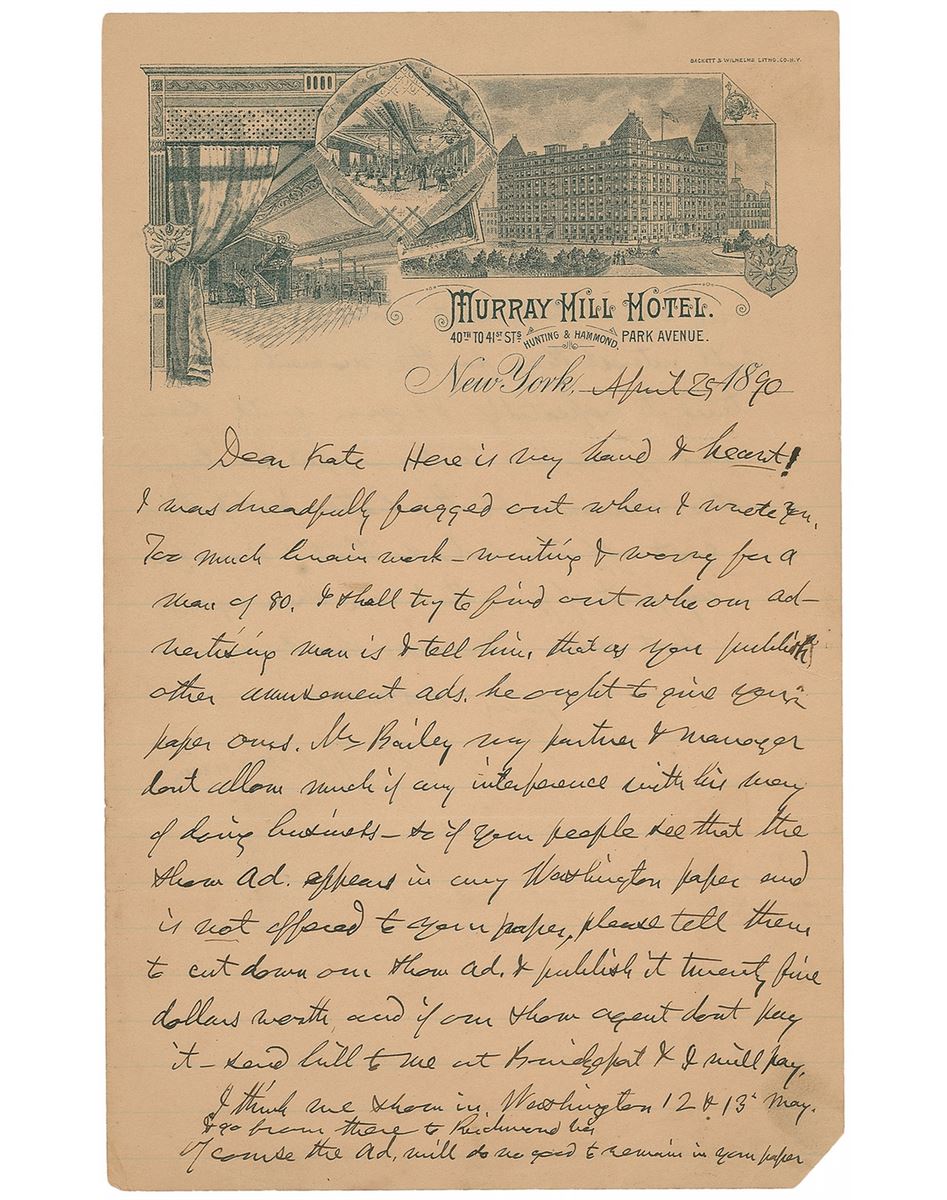 SACKETT & WILHELMS LITHO. CO. N.Y.
MURRAY HILL HOTEL.
40TH TO 41ST STS HUNTING & HAMMOND. PARK AVENUE.
New York, April 29 1890
Dear Kate Here is my hand & heart!
I was dreadfully fagged out when I wrote you.
Too much brain work – writing & worry for a
man of 80. I shall try to find out who our ad-
vertising man is & tell him, that as you publish
other amusement ads. he ought to give your
paper ours. Mr Bailey my partner & manager
dont allow much if any interference with his way
of doing business – so if your people see that the
show ad. appears in any Washington paper and
is not offered to your paper, please tell them
to cut down our show ad. & publish it twenty five
dollars worth, and if our show agent dont pay
it – send bill to me at Bridgeport & I will pay.
I think we show in Washington 12 & 13 May.
& go from there to Richmond
Of course the Ad. will do no good to remain in your paper